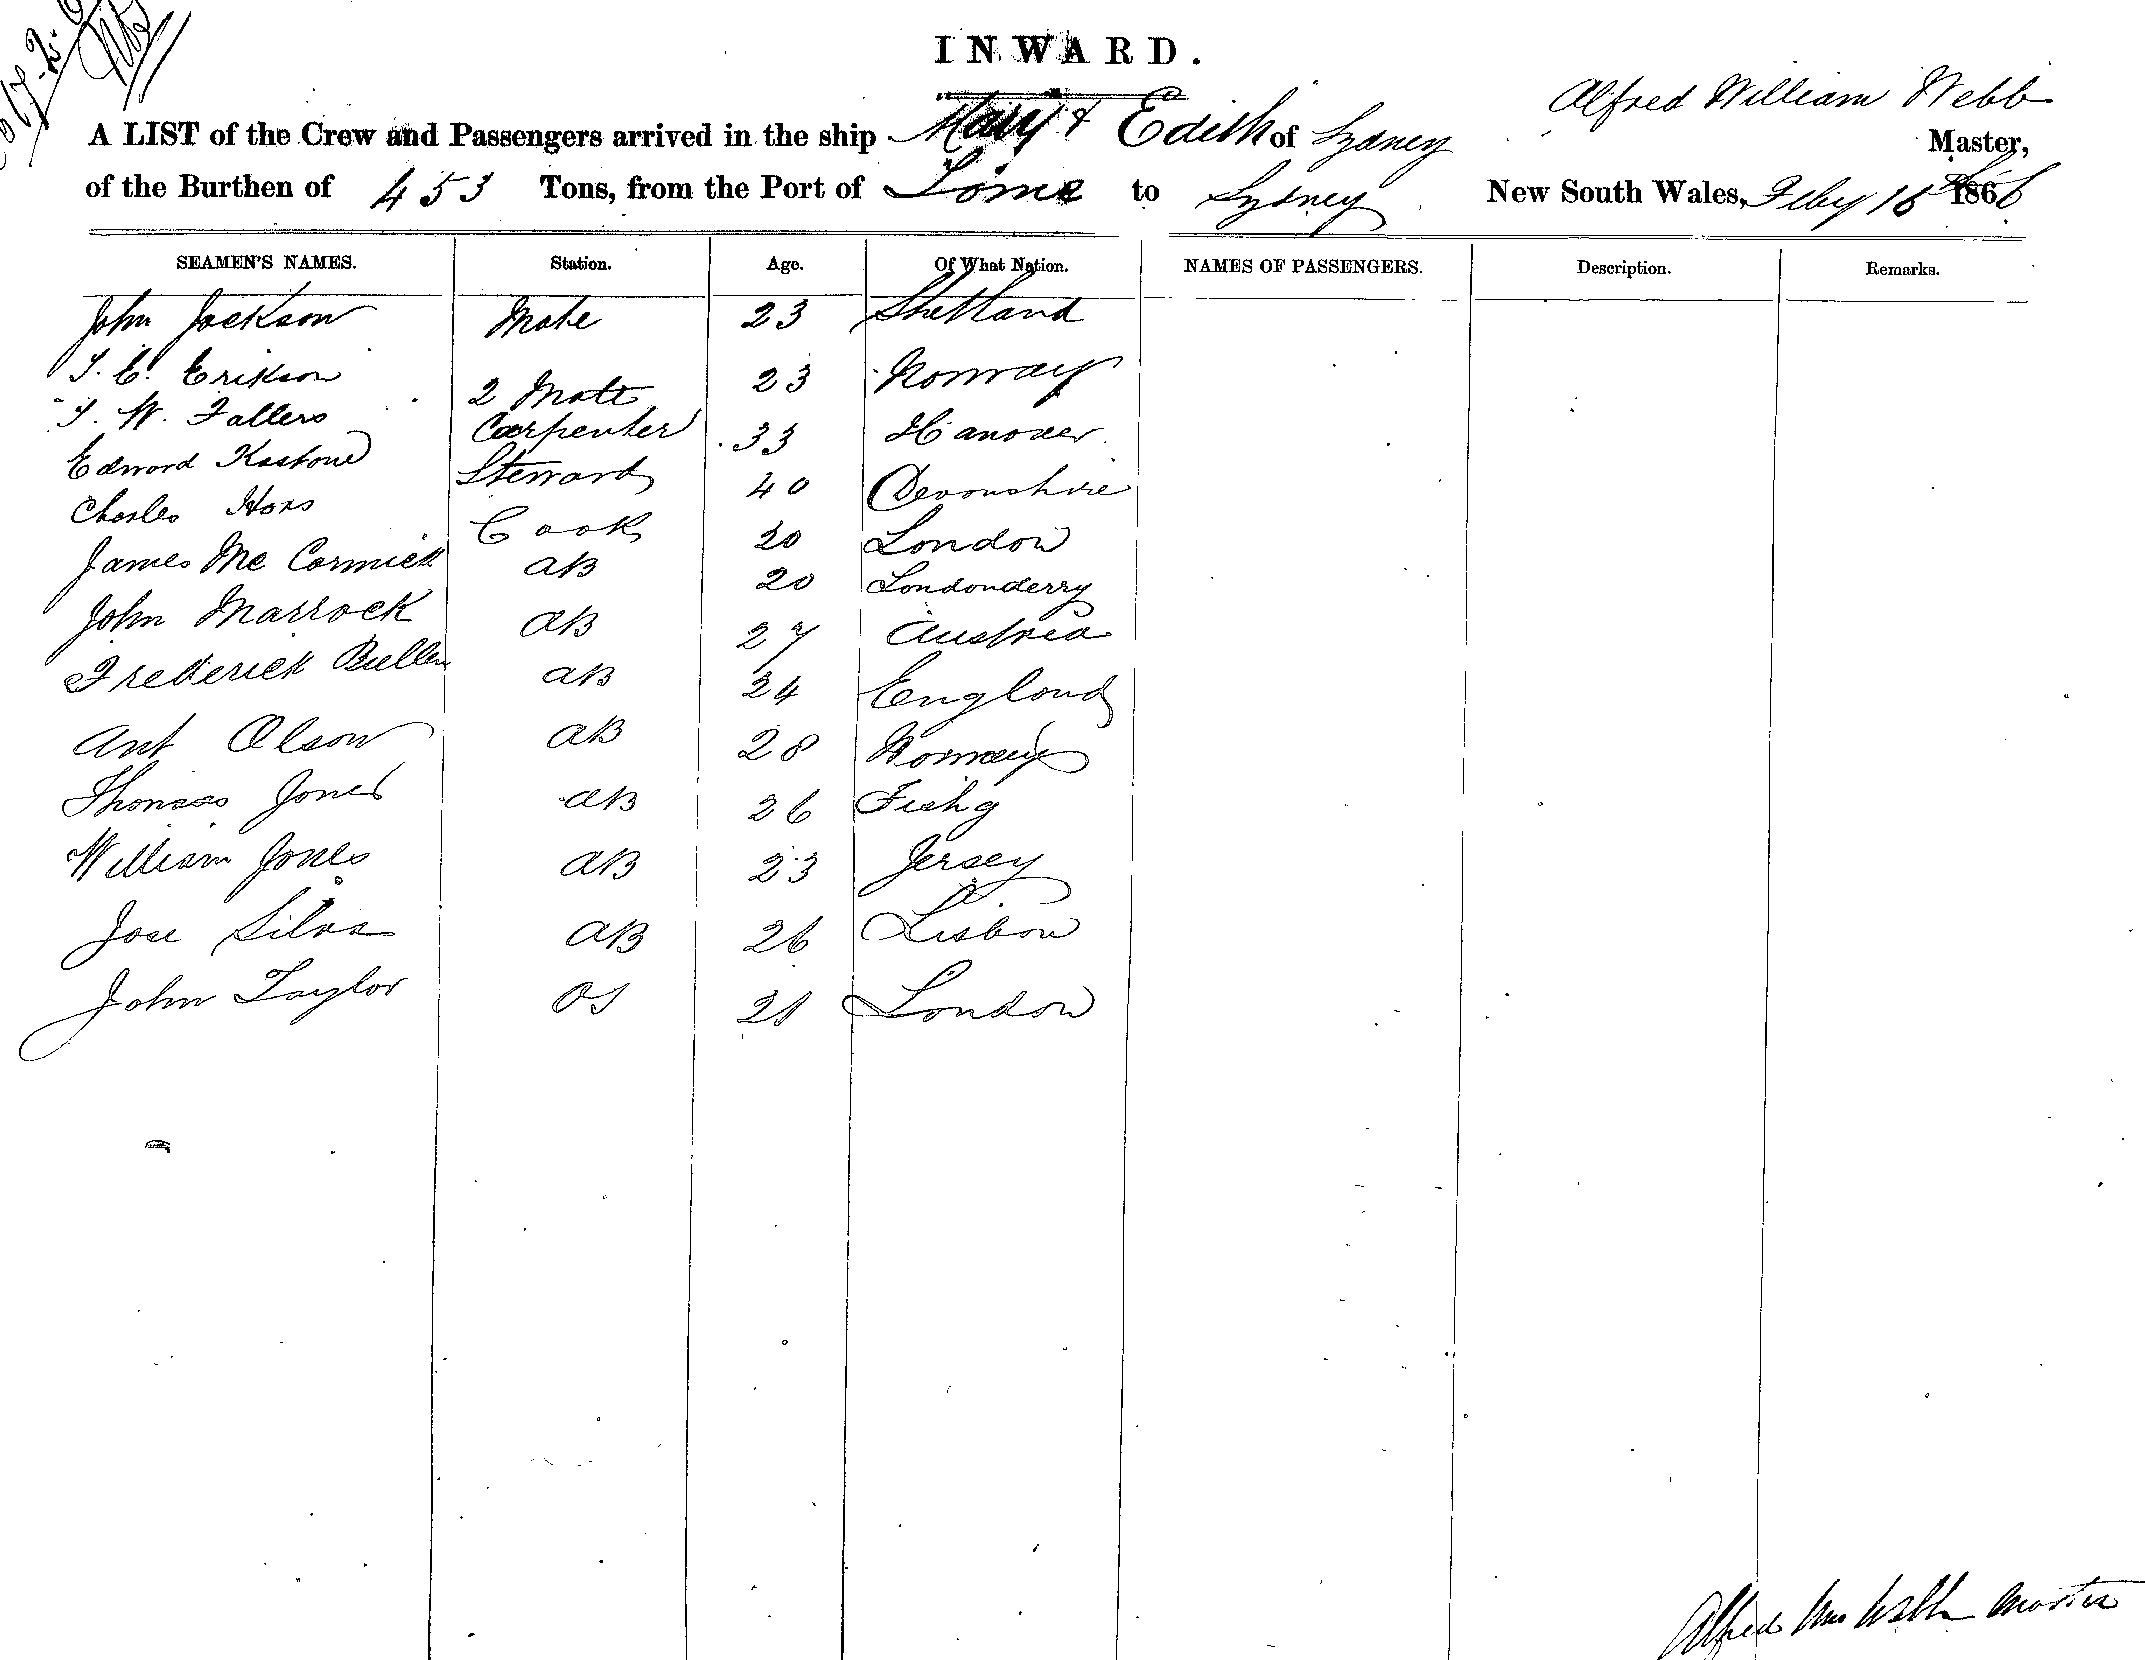 INWARD.
Alfred William Webb
A LIST of the Crew and Passengers arrived in the ship Mary & Edith of Sydney Master,
of the Burthen of 453 Tons, from the Port of to Sydney New South Wales, Feby 1866
SEAMEN'S NAMES. Station. Age. Of What Nation. NAMES OF PASSENGERS. Description. Remarks.
John Jackson Mate 23 Shetland
Erikson 2 Mate 23 Norway
W. Fallers Carpenter 33 Hanover
Edward Steward 40 Devonshire
Charles Cook 20 London
James Mc Cormick AB 20 Londonderry
John Marrock AB 27 Austria
Frederick Bullen AB 24 England
Ant Olson AB 28 Norway
Thomas Jones AB 26
William Jones AB 23 Jersey
Jose Silva AB 26 Lisbon
John Taylor OS 21 London
Alfred Wm Webb Master